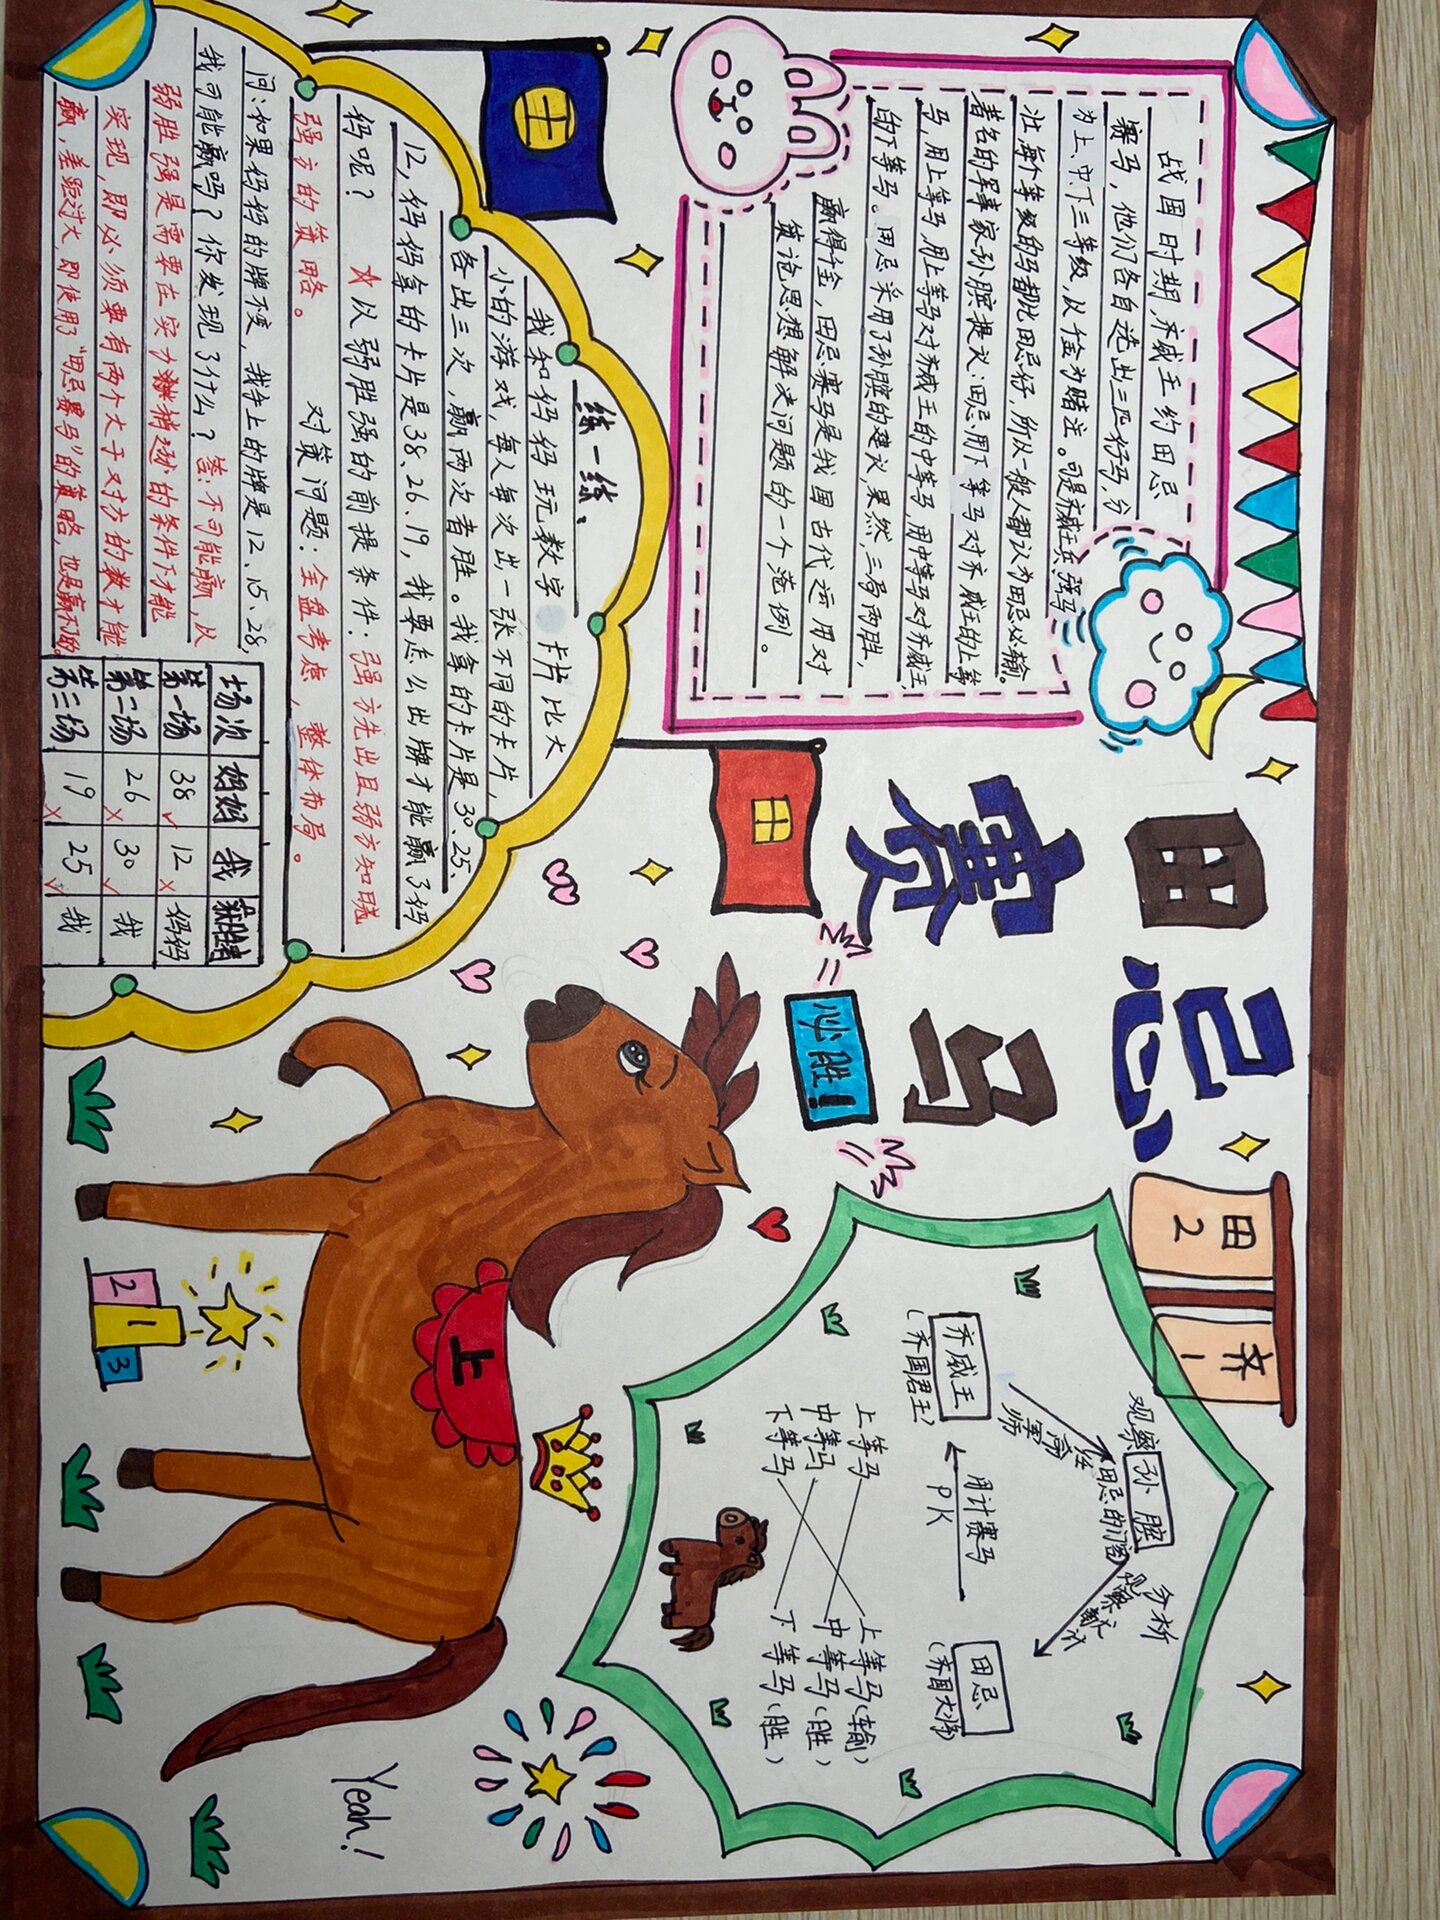 田忌
赛马
必胜！
战国时期，齐威王约田忌
赛马，他们各自选出三匹好马，分
为上、中、下三等级，从千金为赌注。可是齐威王兵强马
壮，每个等级的马都比田忌好，所以一般人都认为田忌必输。
著名的军事家孙膑提议：田忌用下等马对齐威王的上等
马，用上等马，用上等马对齐威王的中等马，用中等马对齐威王
的下等马。田忌采用了孙膑的建议，果然，三局两胜，
赢得千金，田忌赛马是我国古代运用对
策论思想解决问题的一个范例。
田 齐
2 1
观察 孙膑 分析
田忌的门客
齐威王
（齐国君王）
用计赛马
PK
田忌
（齐国大将）
上等马 上等马（输）
中等马 中等马（胜）
下等马 下等马（胜）
士
田
练一练：
我和妈妈玩数字 卡片比大
小的游戏，每人每次出一张不同的卡片，
各出三次，赢两次者胜。我拿的卡片是30、25、
12，妈妈拿的卡片是38、26、19，我要怎么出牌才能赢了妈
妈呢？ ☆以弱胜强的前提条件：强方先出且弱方知晓
强方的策略。 对策问题：全盘考虑，整体布局。
问：如果妈妈的牌不变，我手上的牌是12、15、28，
我可能赢吗？你发现了什么？答：不可能赢，以
弱胜强是需要在实力稍逊的条件下才能
实现，即必须要有两个大于对方的数才能
赢，差距过大，即使用了“田忌赛马”的策略，也是赢不了的。
场次 妈妈 我 获胜者
第一场 38 ✓ 12 × 妈妈
第二场 26 × 30 ✓ 我
第三场 19 × 25 ✓ 我
上
2 1 3
Yeah!